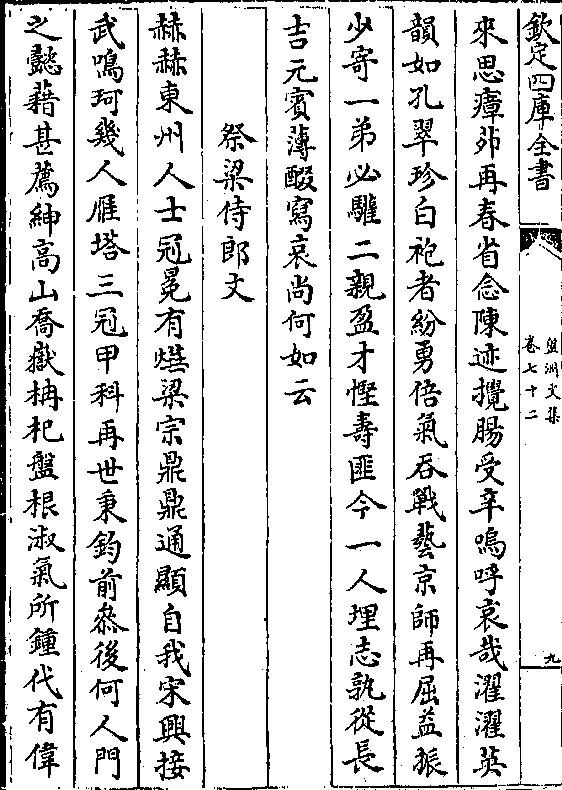 欽定四庫全書
盤洲文集
卷七十二
九
來思瘴茆再春省念陳迹攪腸受辛嗚呼哀哉濯濯英
韻如孔翠珍白袍者紛勇倍氣吞戰藝京師再屈益振
少寄一弟必騅二親盈才慳壽匪今一人埋志孰從長
吉元賓薄醊寫哀尚何如云
祭梁侍郎文
赫赫東州人士冠冕有燁梁宗鼎鼎通顯自我宋興接
武鳴珂幾人雁塔三冠甲科再世秉鈞前叅後何人門
之懿藉甚薦紳高山喬嶽柟杞盤根淑氣所鍾代有偉